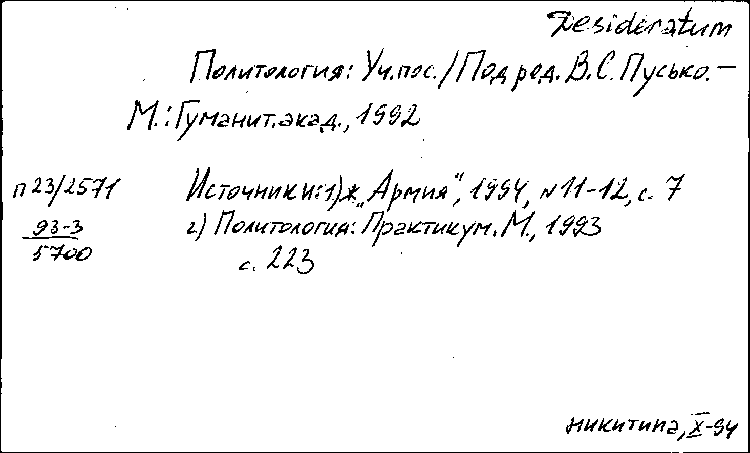 Desideratum
Политология: Уч.пос./Под ред. В.С. Пусько.—
М.: Гуманит.акад., 1992
п23/2571 Источники: 1) ж. „Армия", 1994, №11-12, с. 7
93-3 2) Политология: Практикум. М., 1993
5700 с. 223
Никитина, X-94